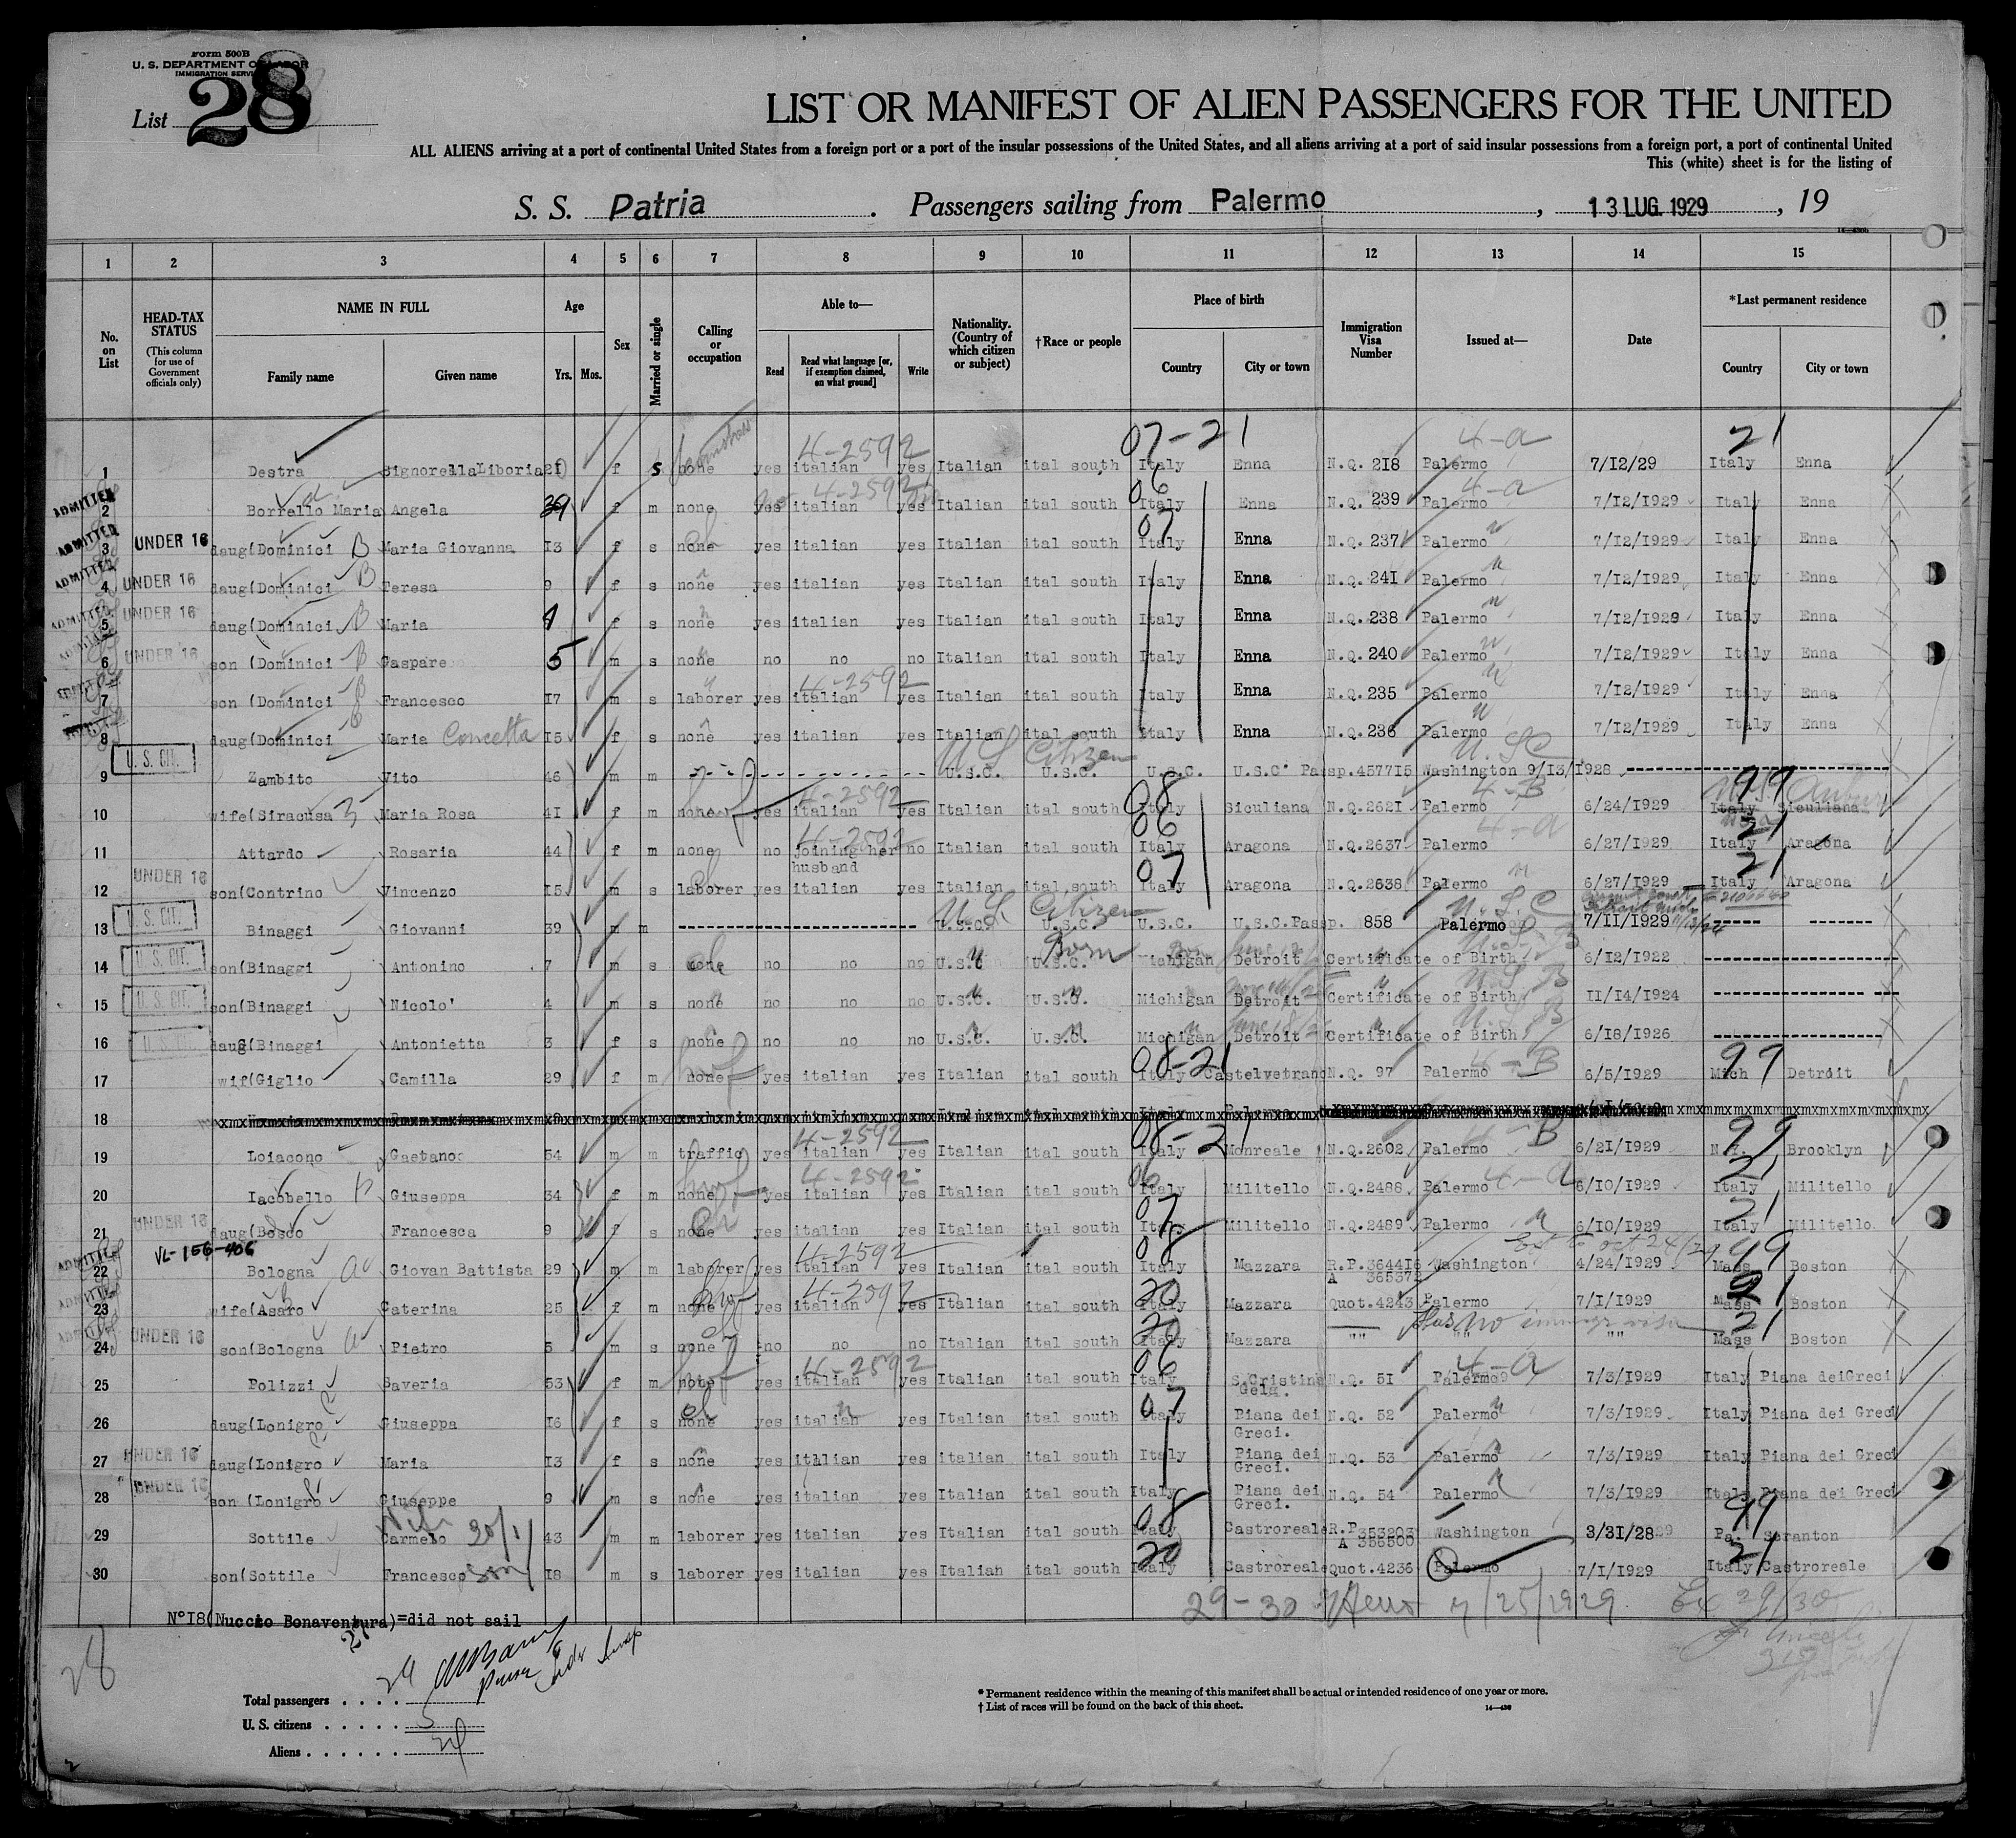 Form 500B
U. S. DEPARTMENT OF LABOR
IMMIGRATION SERVICE
List 28
LIST OR MANIFEST OF ALIEN PASSENGERS FOR THE UNITED
ALL ALIENS arriving at a port of continental United States from a foreign port or a port of the insular possessions of the United States, and all aliens arriving at a port of said insular possessions from a foreign port, a port of continental United
This (white) sheet is for the listing of
S. S. Patria . Passengers sailing from Palermo , 13 LUG. 1929 , 19
1 2 3 4 5 6 7 8 9 10 11 12 13 14 15
No. on List
HEAD-TAX STATUS (This column for use of Government officials only)
NAME IN FULL Family name Given name
Age Yrs. Mos.
Sex
Married or single
Calling or occupation
Able to— Read Read what language [or, if exemption claimed, on what ground] Write
Nationality. (Country of which citizen or subject)
† Race or people
Place of birth Country City or town
Immigration Visa Number
Issued at—
Date
*Last permanent residence Country City or town
4-2592 07-21 4-a 21
1 Destra Signorella Liboria 21 f s none yes italian yes Italian ital south Italy Enna N.Q. 218 Palermo 7/12/29 Italy Enna
4-2592 06 4-a
ADMITTED 2 Borrello Maria Angela 39 f m none yes italian yes Italian ital south Italy Enna N.Q. 239 Palermo 7/12/1929 Italy Enna
07
ADMITTED 3 UNDER 16 daug(Dominici B Maria Giovanna 13 f s none yes italian yes Italian ital south Italy Enna N.Q. 237 Palermo 7/12/1929 Italy Enna
ADMITTED 4 UNDER 16 daug(Dominici B Teresa 9 f s none yes italian yes Italian ital south Italy Enna N.Q. 241 Palermo 7/12/1929 Italy Enna
ADMITTED 5 UNDER 16 daug(Dominici B Maria f s none yes italian yes Italian ital south Italy Enna N.Q. 238 Palermo 7/12/1929 Italy Enna
6 UNDER 16 son (Dominici B Gaspare 5 m s none no no no Italian ital south Italy Enna N.Q. 240 Palermo 7/12/1929 Italy Enna
4-2592
7 son (Dominici B Francesco 17 m s laborer yes italian yes Italian ital south Italy Enna N.Q. 235 Palermo 7/12/1929 Italy Enna
8 daug(Dominici Maria Concetta 15 f s none yes italian yes Italian ital south Italy Enna N.Q. 236 Palermo 7/12/1929 Italy Enna
U S Citizen U.SC
U. S. CIT. 9 Zambito Vito 46 m m U.S.C. U.S.C. U.S.C. U.S.C. Passp.457715 Washington 9/13/1928
4-2592 08 4-B 99
10 wife(Siracusa Maria Rosa 41 f m none yes italian yes Italian ital south Italy Siculiana N.Q.2621 Palermo 6/24/1929 Italy Siculiana
4-2592 06 4-a 21
11 Attardo Rosaria 44 f m none no joining her husband no Italian ital south Italy Aragona N.Q.2637 Palermo 6/27/1929 Italy Aragona
07 21
12 UNDER 16 son(Contrino Vincenzo 15 m s laborer yes italian yes Italian ital south Italy Aragona N.Q.2638 Palermo 6/27/1929 Italy Aragona
U S Citizen U.S.C
13 U. S. CIT. Binaggi Giovanni 39 m m U.S.C. U.S.C. U.S.C. U.S.C.Passp. 858 Palermo 7/11/1929
Born
14 U. S. CIT. son(Binaggi Antonino 7 m s none no no no U.S.C U.S.C. Michigan Detroit Certificate of Birth 6/12/1922
U S B
15 U. S. CIT. son(Binaggi Nicolo' 4 m s none no no no U.S.C. U.S.C. Michigan Detroit Certificate of Birth 11/14/1924
U S B
16 U. S. CIT. daug(Binaggi Antonietta 3 f s none no no no U.S.C. U.S.C. Michigan Detroit Certificate of Birth 6/18/1926
hwf 08-21 4-B 99
17 wif(Giglio Camilla 29 f m none yes italian yes Italian ital south Italy Castelvetrano N.Q. 97 Palermo 6/5/1929 Mich Detroit
18
4-2592 08-21 B 99
19 Loiacono Gaetano 54 m m traffic yes italian yes Italian ital south Italy Monreale N.Q.2602 Palermo 6/21/1929 N.Y. Brooklyn
hwf 4-2592 06 4-a 21
20 Iacobello Giuseppa 34 f m none yes italian yes Italian ital south Italy Militello N.Q.2488 Palermo 6/10/1929 Italy Militello
ch 07 21
21 UNDER 16 daug(Bosco Francesca 9 f s none yes italian yes Italian ital south Italy Militello N.Q.2489 Palermo 6/10/1929 Italy Militello
VL-156-406 4-2592 08 99
ADMITTED 22 Bologna Giovan Battista 29 m m laborer yes italian yes Italian ital south Italy Mazzara R.P.364416 A 365372 Washington 4/24/1929 Mass Boston
hwf 4-2592 20 21
ADMITTED 23 wife(Asaro Caterina 25 f m none yes italian yes Italian ital south Italy Mazzara Quot.4243 Palermo 7/1/1929 Mass Boston
ch 20 Has no immigr visa 21
ADMITTED 24 UNDER 16 son(Bologna Pietro 5 m s none no no no Italian ital south Italy Mazzara "" "" "" Mass Boston
hwf 4-2592 06 4-a
25 Polizzi Saveria 53 f m none yes italian yes Italian ital south Italy S.Cristina Gela. N.Q. 51 Palermo 7/3/1929 Italy Piana dei Greci
ch 07
26 daug(Lonigro Giuseppa 16 f s none yes italian yes Italian ital south Italy Piana dei Greci. N.Q. 52 Palermo 7/3/1929 Italy Piana dei Greci
27 UNDER 16 daug(Lonigro Maria 13 f s none yes italian yes italian ital south Italy Piana dei Greci. N.Q. 53 Palermo 7/3/1929 Italy Piana dei Greci
28 UNDER 16 son (Lonigro Giuseppe 9 m s none yes italian yes Italian ital south Italy Piana dei Greci. N.Q. 54 Palermo 7/3/1929 Italy Piana dei Greci
08 99
29 Sottile Carmelo 43 m m laborer yes italian yes Italian ital south Italy Castroreale R.P.353203 A 356500 Washington 3/31/28 Pa. Scranton
20 21
30 son(Sottile Francesco son 18 m s laborer yes italian yes Italian ital south Italy Castroreale Quot.4236 Palermo 7/1/1929 Italy Castroreale
29-30 7/25/1929 29/30
N°18(Nuccio Bonaventura)=did not sail
28
Total passengers . . . .
U. S. citizens . . . . . 5
Aliens . . . . . . 24
* Permanent residence within the meaning of this manifest shall be actual or intended residence of one year or more.
† List of races will be found on the back of this sheet.